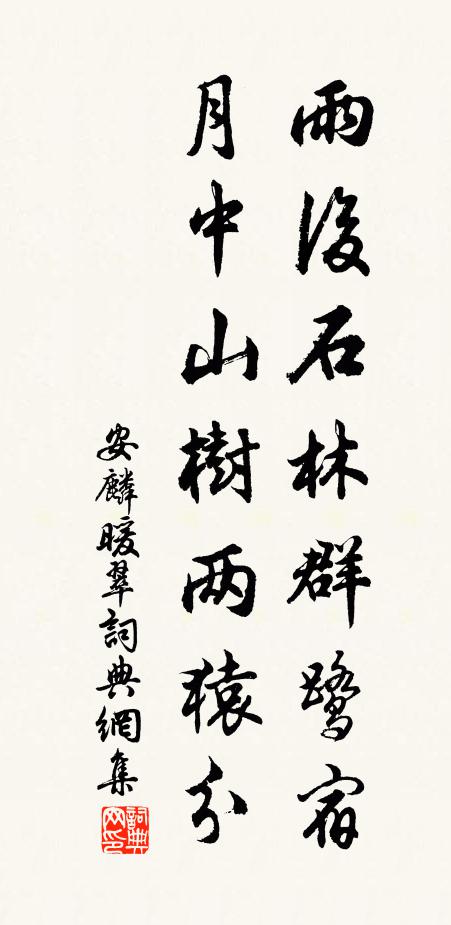 雨後石林群鹭宿
月中山樹两猿分
安麟暖翠詞典網集
詞典网印